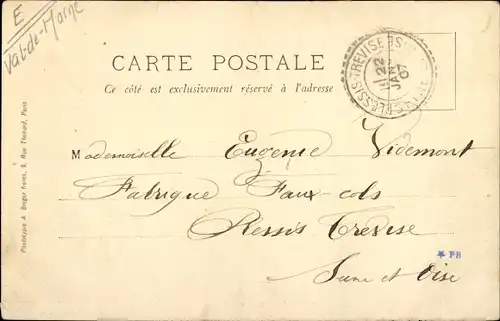 E
Val-de-Marne
CARTE POSTALE
Ce côté est exclusivement réservé à l'adresse
PLESSIS-TREVISE
22
JAN
07
Mademoiselle Eugenie Videmont
Fabrique Faux-cols
Plessis Trévise
Seine et Oise
PB
Phototypie A. Breger frères, 9, Rue Thénard, Paris